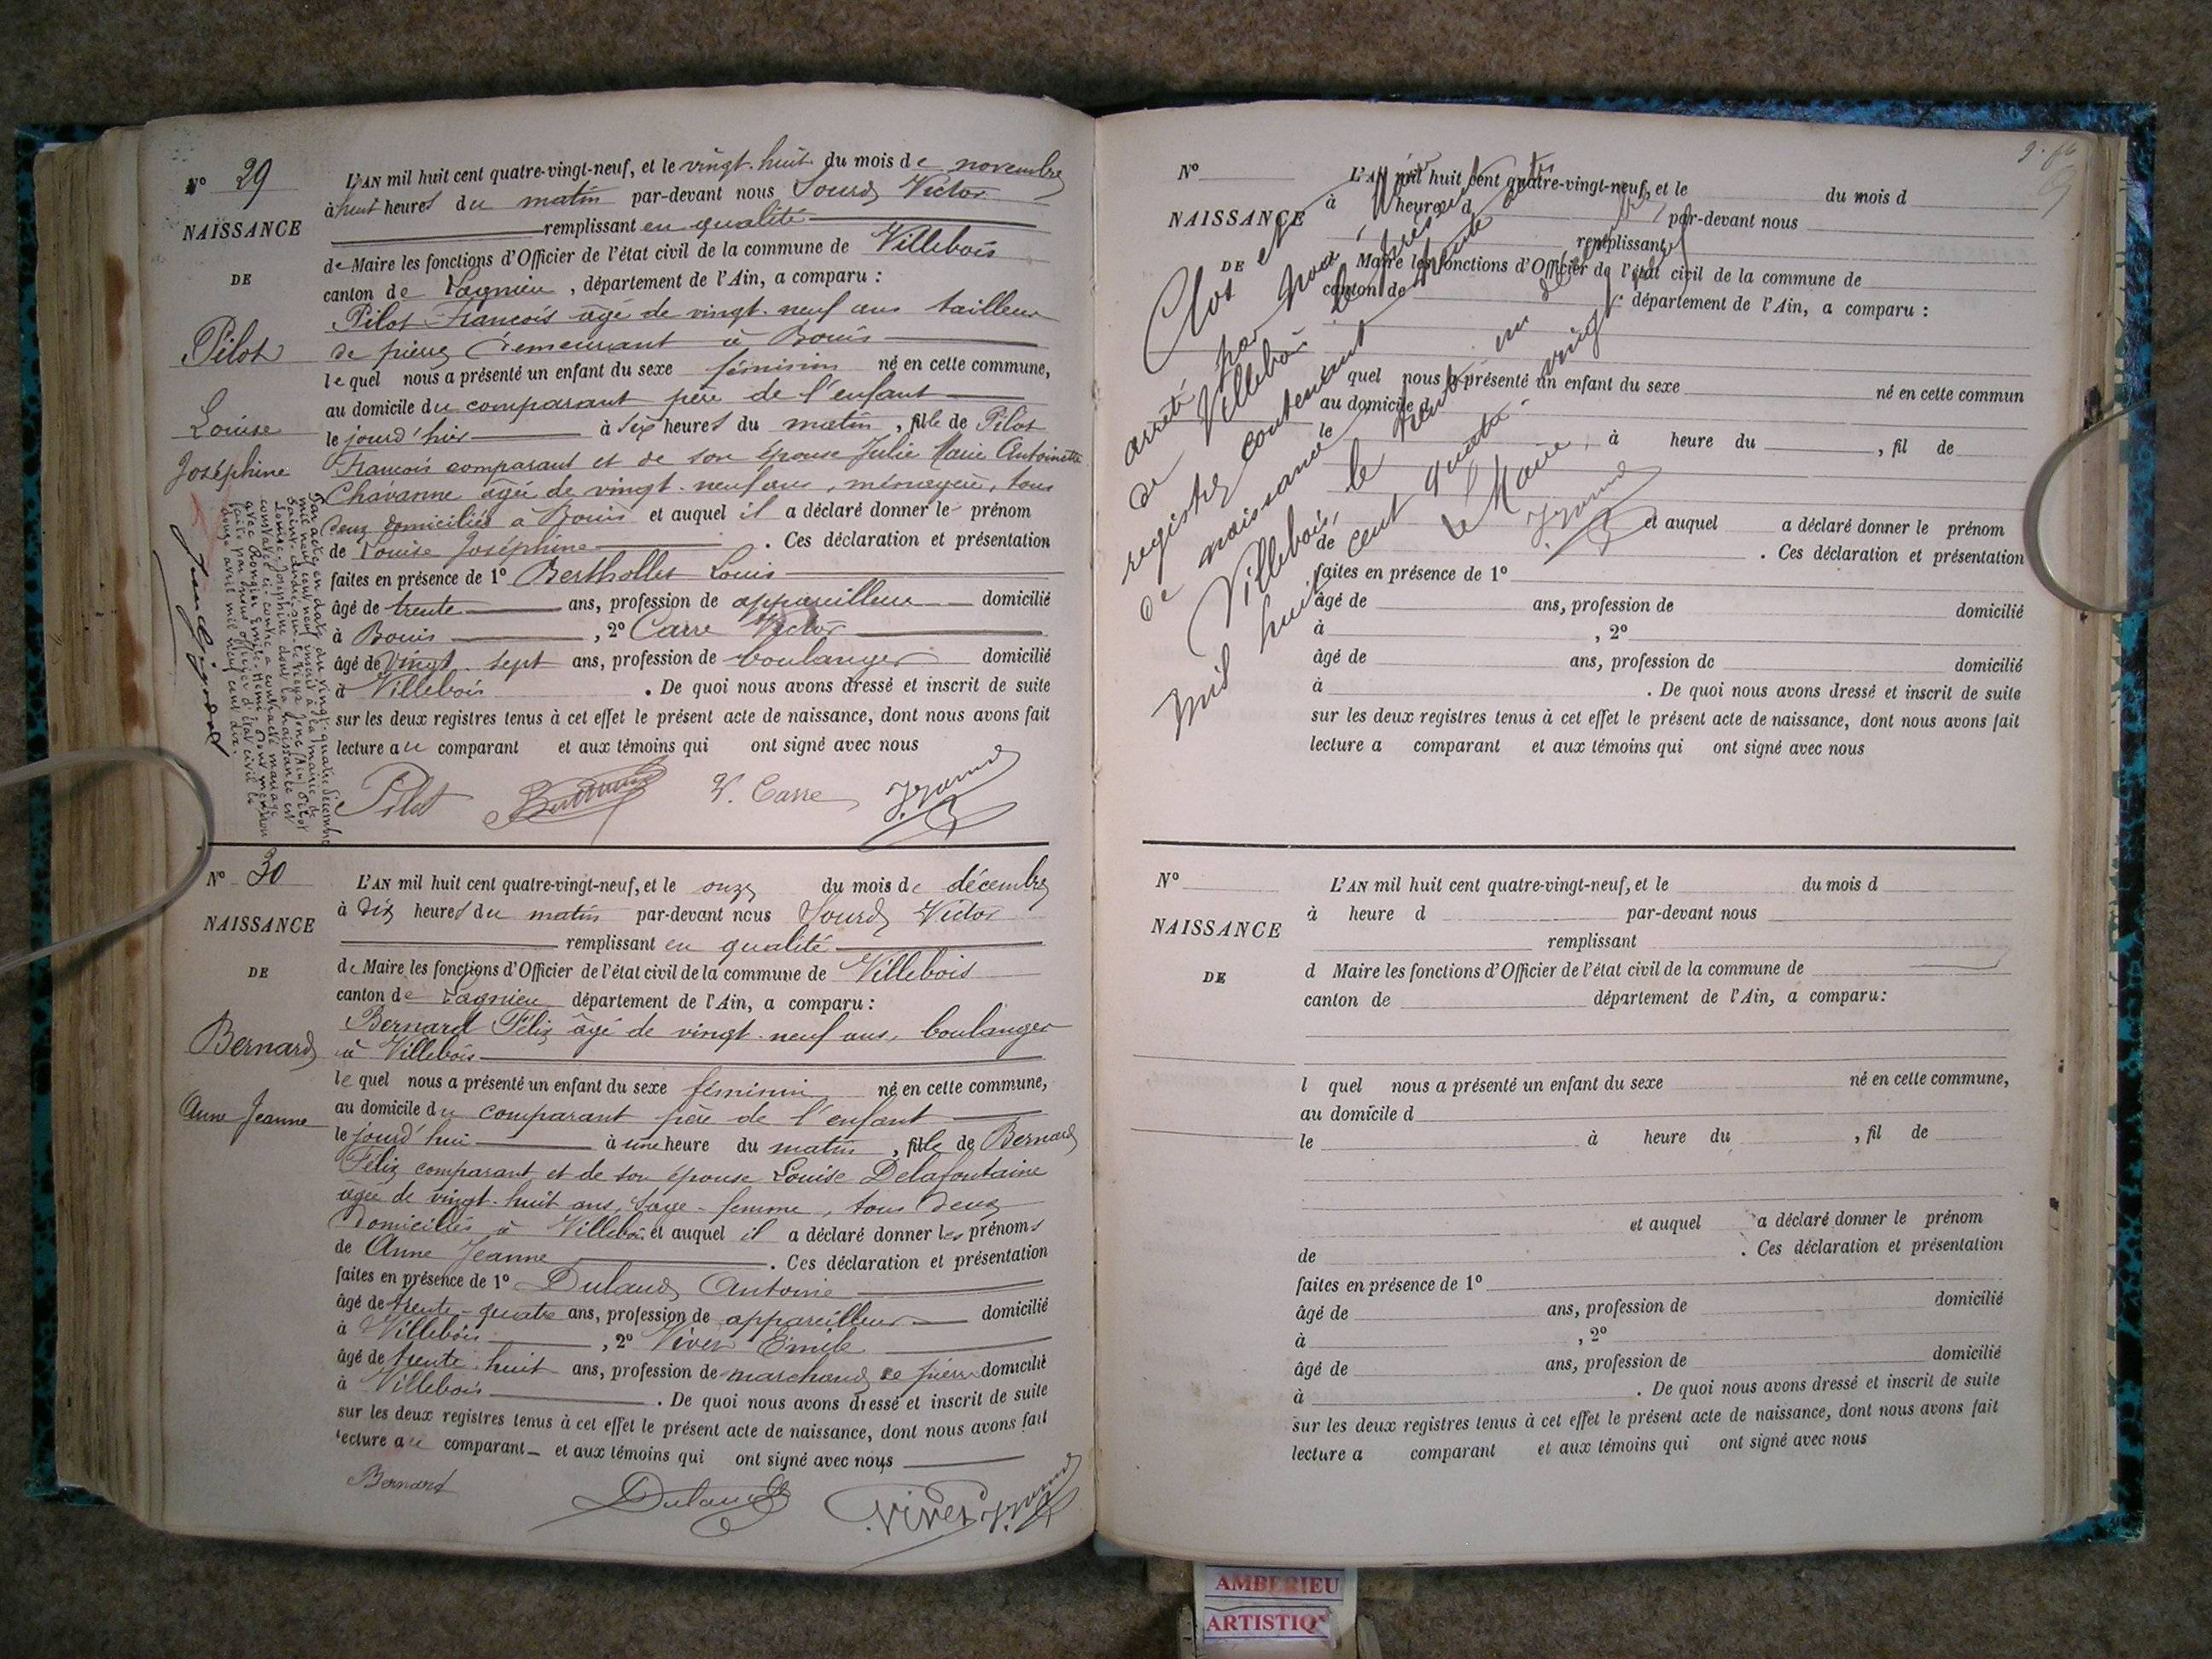 N° 29
NAISSANCE
DE
Pilot
Louise
Joséphine
L'AN mil huit cent quatre-vingt-neuf, et le vingt-huit du mois de novembre
à huit heures du matin par-devant nous Jourd Victor
remplissant en qualité
de Maire les fonctions d'Officier de l'état civil de la commune de Villebois
canton de Lagnieu, département de l'Ain, a comparu :
Pilot François âgé de vingt-neuf ans tailleur
de pierre demeurant à Bouis
lequel nous a présenté un enfant du sexe féminin né en cette commune,
au domicile du comparant père de l'enfant
le jourd'hui à six heures du matin, fille de Pilot
François comparant et de son épouse Julie Marie Antoinette
Chavanne âgée de vingt-neuf ans, ménagère, tous
deux domiciliés à Bouis et auquel il a déclaré donner le prénom
de Louise Joséphine. Ces déclaration et présentation
faites en présence de 1° Berthollet Louis
âgé de trente ans, profession de appareilleur domicilié
à Bouis, 2° Carre Victor
âgé de vingt-sept ans, profession de boulanger domicilié
à Villebois. De quoi nous avons dressé et inscrit de suite
sur les deux registres tenus à cet effet le présent acte de naissance, dont nous avons fait
lecture au comparant et aux témoins qui ont signé avec nous
Pilot V. Carre
Par acte en date du vingt-quatre décembre
mil neuf cent neuf inscrit à la mairie de
Saint-André-sur-le-Vieux-Jonc (Ain) Pilot
Louise-Joséphine dont la naissance est
constatée ci-contre a contracté mariage
avec Emile-Henri dont mention
faite par nous officier d'état civil le
douze avril mil neuf cent dix.
N° 30
NAISSANCE
DE
Bernard
Anne Jeanne
L'AN mil huit cent quatre-vingt-neuf, et le onze du mois de décembre
à dix heures du matin par-devant nous Jourd Victor
remplissant en qualité
de Maire les fonctions d'Officier de l'état civil de la commune de Villebois
canton de Lagnieu département de l'Ain, a comparu :
Bernard Félix âgé de vingt-neuf ans, boulanger
à Villebois
lequel nous a présenté un enfant du sexe féminin né en cette commune,
au domicile du comparant père de l'enfant
le jourd'hui à une heure du matin, fille de Bernard
Félix comparant et de son épouse Louise Delafontaine
âgée de vingt-huit ans, sage-femme, tous deux
domiciliés à Villebois et auquel il a déclaré donner les prénoms
de Anne Jeanne. Ces déclaration et présentation
faites en présence de 1° Dulaud Antoine
âgé de trente-quatre ans, profession de appareilleur domicilié
à Villebois, 2° Emile
âgé de trente-huit ans, profession de marchand de pierre domicilié
à Villebois. De quoi nous avons dressé et inscrit de suite
sur les deux registres tenus à cet effet le présent acte de naissance, dont nous avons fait
lecture au comparant et aux témoins qui ont signé avec nous
Bernard Dulaud
N°
NAISSANCE
DE
L'AN mil huit cent quatre-vingt-neuf, et le du mois d
à heure d par-devant nous
remplissant
Maire les fonctions d'Officier de l'état civil de la commune de
canton de département de l'Ain, a comparu :
quel nous a présenté un enfant du sexe né en cette commun
au domicile d
le à heure du , fil de
et auquel a déclaré donner le prénom
de . Ces déclaration et présentation
faites en présence de 1°
âgé de ans, profession de domicilié
à , 2°
âgé de ans, profession de domicilié
à . De quoi nous avons dressé et inscrit de suite
sur les deux registres tenus à cet effet le présent acte de naissance, dont nous avons fait
lecture a comparant et aux témoins qui ont signé avec nous
Clos et
arrêté par nous, Maire
de Villebois le présent
registre contenant trente actes
de naissance
Villebois, le trente un décembre
mil huit cent quatre-vingt neuf
Le Maire,
N°
NAISSANCE
DE
L'AN mil huit cent quatre-vingt-neuf, et le du mois d
à heure d par-devant nous
remplissant
d Maire les fonctions d'Officier de l'état civil de la commune de
canton de département de l'Ain, a comparu :
l quel nous a présenté un enfant du sexe né en cette commune,
au domicile d
le à heure du , fil de
et auquel a déclaré donner le prénom
de . Ces déclaration et présentation
faites en présence de 1°
âgé de ans, profession de domicilié
à , 2°
âgé de ans, profession de domicilié
à . De quoi nous avons dressé et inscrit de suite
sur les deux registres tenus à cet effet le présent acte de naissance, dont nous avons fait
lecture a comparant et aux témoins qui ont signé avec nous
AMBERIEU
ARTISTIQ